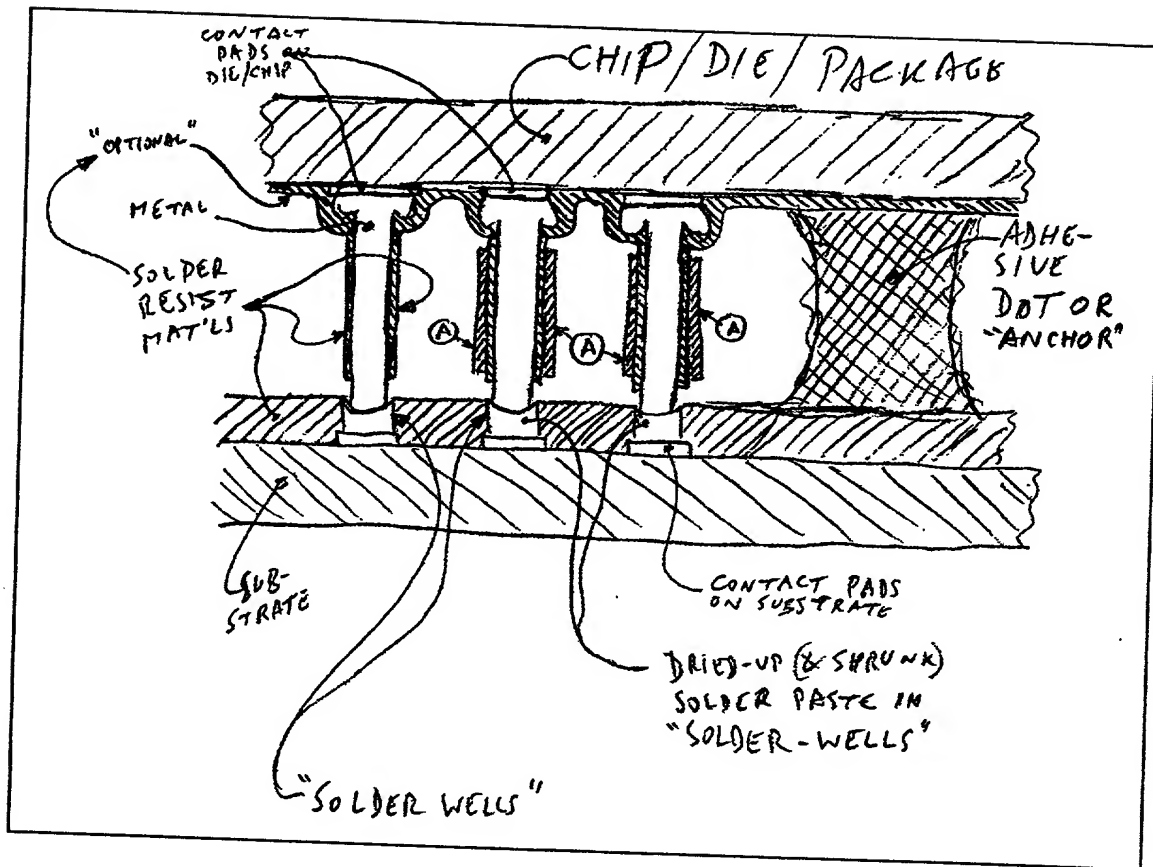 CONTACT
PADS ON
DIE/CHIP
CHIP/DIE/PACKAGE
"OPTIONAL"
METAL
SOLDER
RESIST
MAT'LS
ADHE-
SIVE
DOT OR
"ANCHOR"
A
A
A
SUB-
STRATE
CONTACT PADS
ON SUBSTRATE
DRIED-UP (& SHRUNK)
SOLDER PASTE IN
"SOLDER-WELLS"
"SOLDER WELLS"